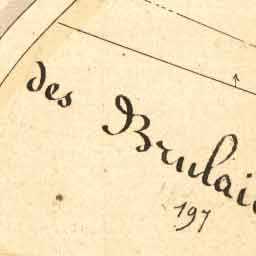 des Brulai
197